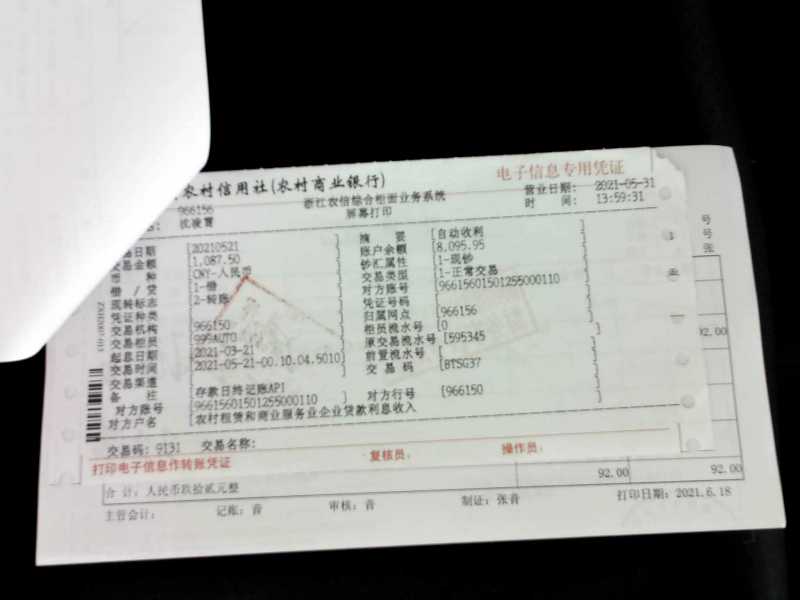 农村信用社(农村商业银行)
电子信息专用凭证
966156
浙江农信综合柜面业务系统
营业日期: 2021-05-31
沈凌霄
屏幕打印
时 间: 13:59:31
日期 [20210521] 摘 要 [自动收利
交易金额 [1,087.50] 账户余额 [8,095.95
币 种 [CNY-人民币] 钞汇属性 [1-现钞
借 / 贷 [1-借] 交易类型 [1-正常交易
现转标志 [2-转账] 对方账号 [96615601501255000110
凭证种类 凭证号码
交易机构 [966150] 归属网点 [966156
交易柜员 [999AUTO] 柜员流水号 [0
起息日期 [2021-03-21] 原交易流水号 [595345
交易时间 [2021-05-21-00.10.04.5010] 前置流水号
交易渠道 交 易 码 [BTSG37
备 注 [存款日终记账API
对方账号 [96615601501255000110 对方行号 [966150
对方户名 [农村租赁和商业服务业企业贷款利息收入
交易码: 9131 交易名称:
打印电子信息作转账凭证 复核员: 操作员:
号
号
张
92.00
92.00 92.00
合 计: 人民币玖拾贰元整
主管会计: 记账: 音 审核: 音 制证: 张音 打印日期: 2021.6.18